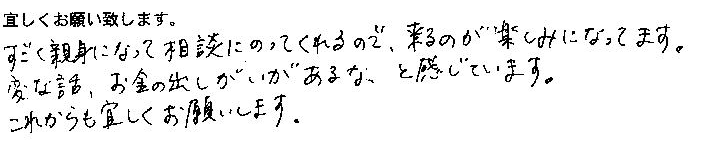 宜しくお願い致します。
すごく親身になって相談にのってくれるので、来るのが楽しみになってます。
変な話、お金の出しがいがあるな、と感じています。
これからも宜しくお願いします。